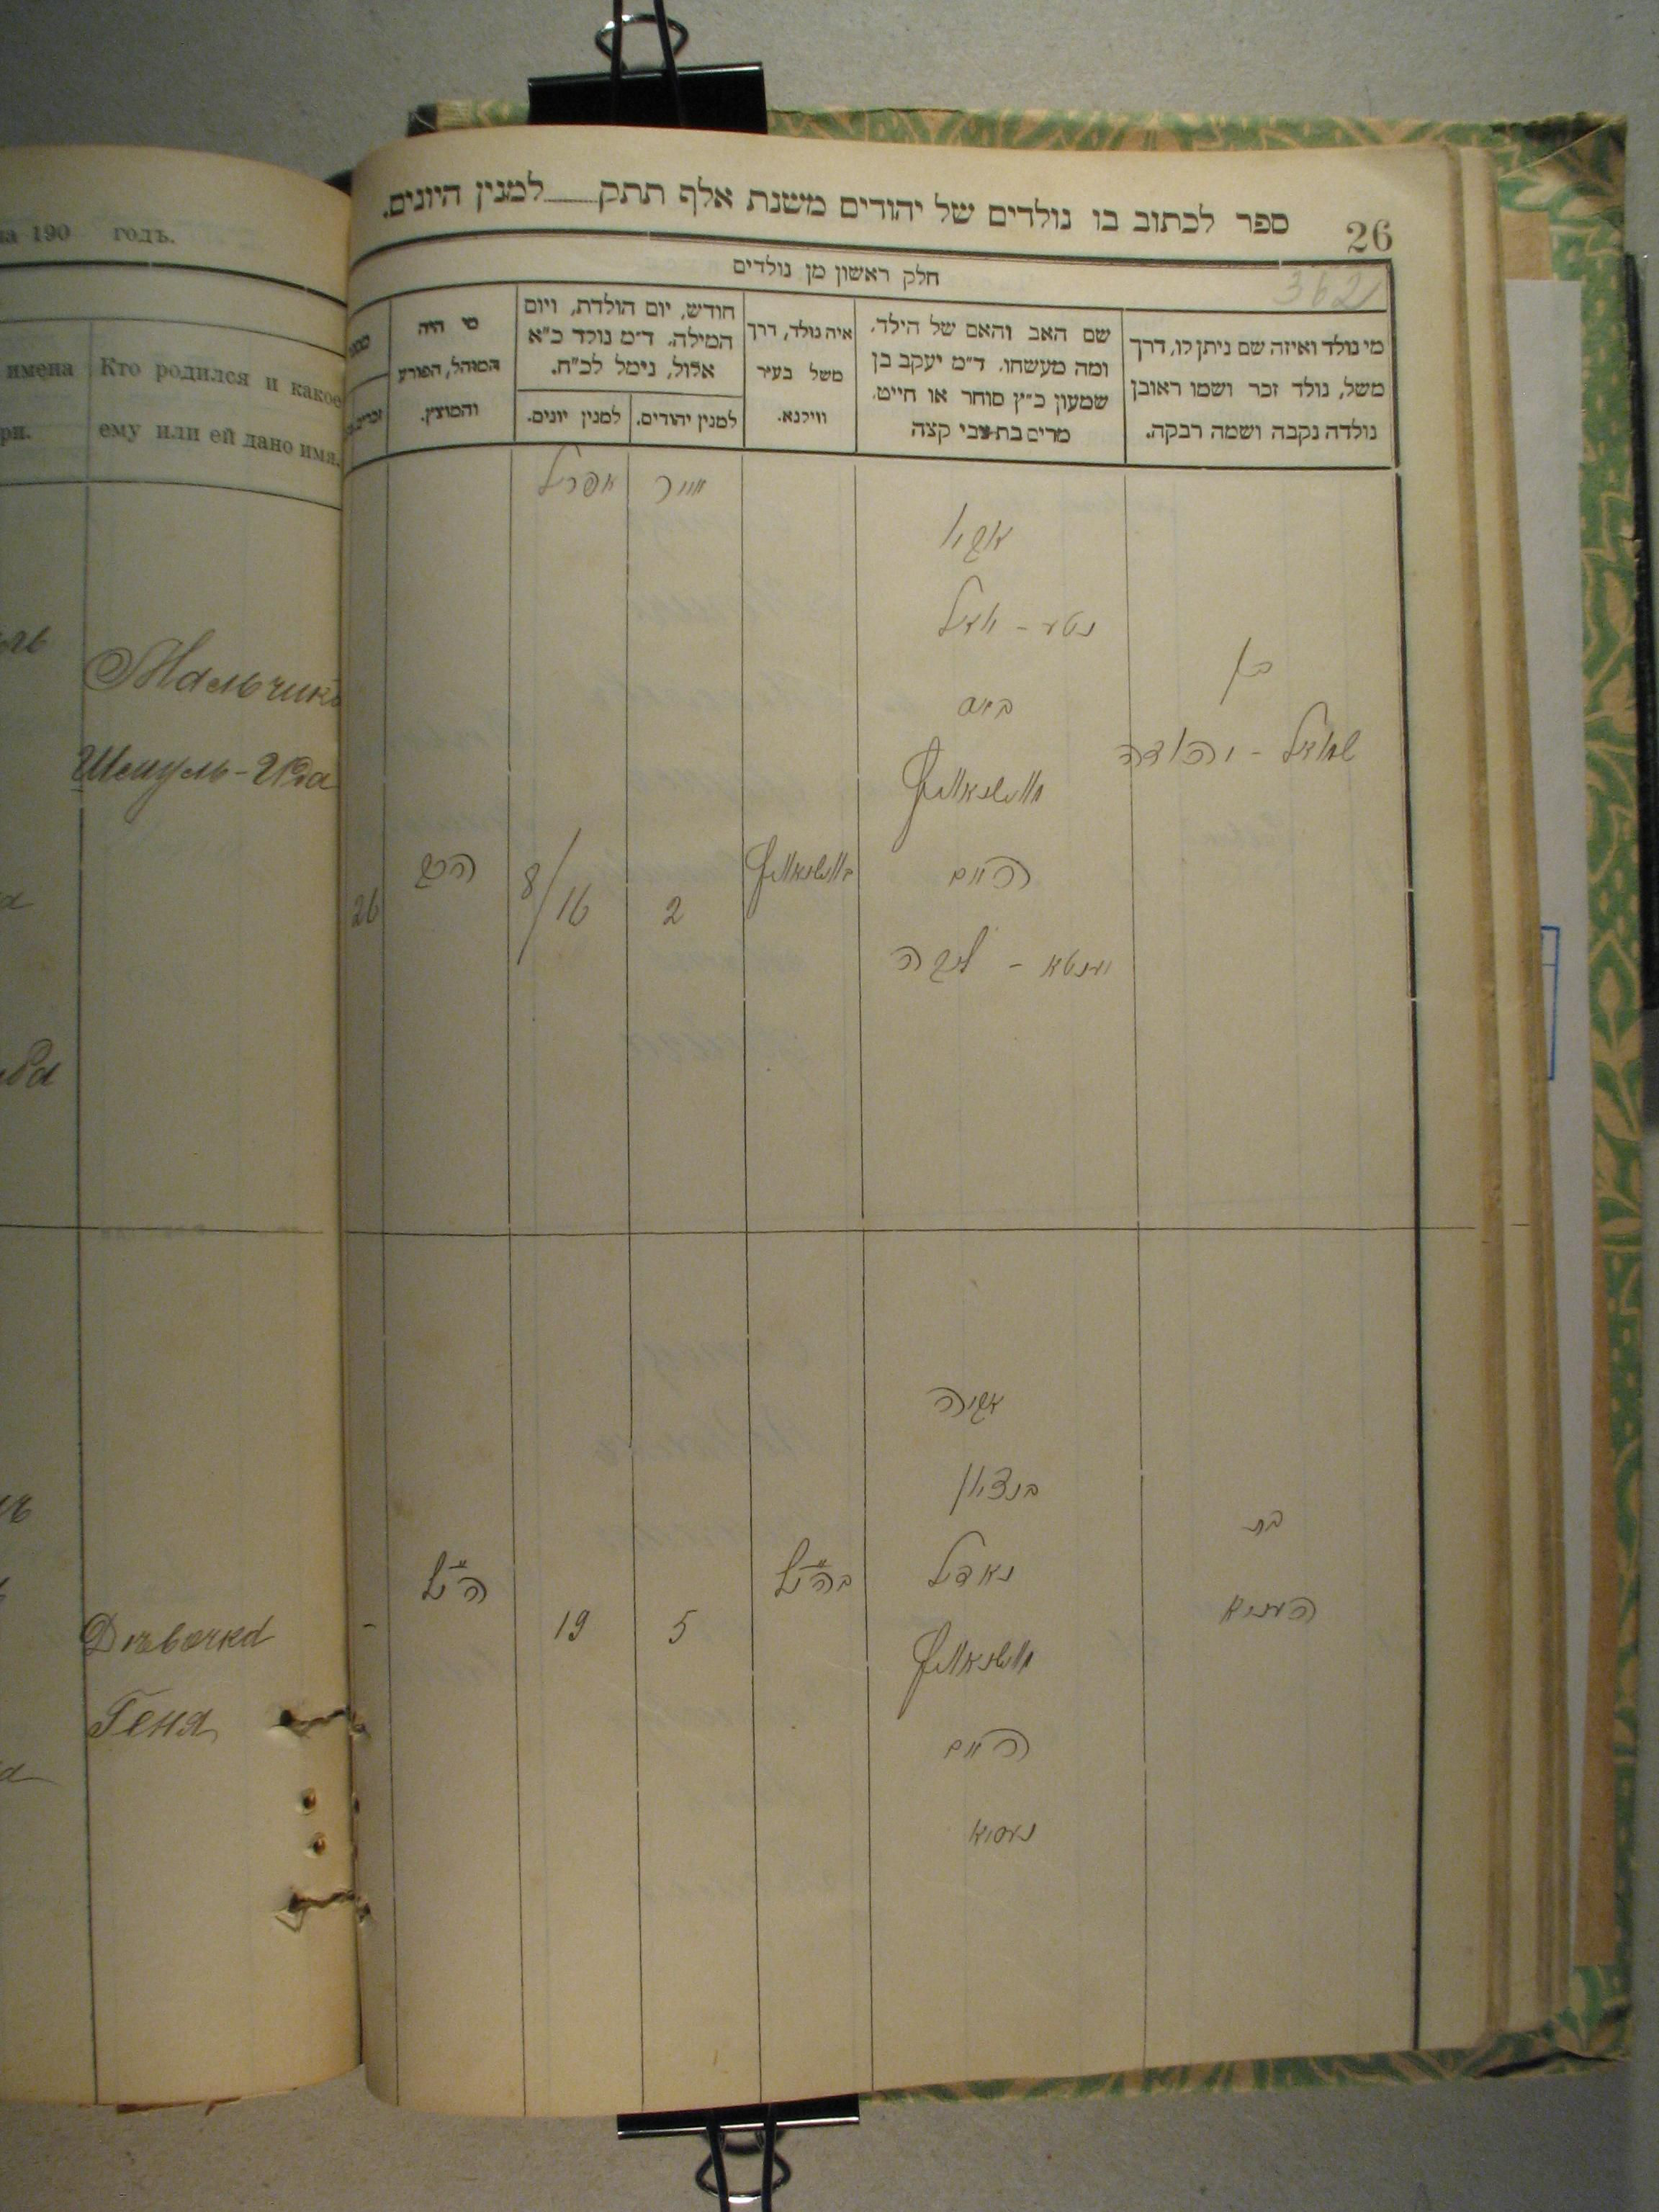 на 190 годъ.
имена
ри.
Кто родился и какое
ему или ей дано имя.
Мальчикъ
Шмуль-Юда
Дѣвочка
Геня
ספר לכתוב בו נולדים של יהודים משנת אלף תתק___למנין היונים.
26
362
חלק ראשון מן נולדים
מי נולד ואיזה שם ניתן לו, דרך
משל, נולד זכר ושמו ראובן
נולדה נקבה ושמה רבקה.
שם האב והאם של הילד,
ומה מעשהו. ד"מ יעקב בן
שמעון כ"ץ סוחר או חייט,
מרים בת צבי קצה
איה נולד, דרך
משל בעיר
ווילנא.
חודש, יום הולדת, ויום
המילה. ד"מ נולד כ"א
אלול, נימל לכ"ח.
למנין יהודים.
למנין יונים.
מי היה
המוהל, הפורע
והמוצץ.
אייר
אפריל
בן
שמואל - יהודה
אביו
נטע - יואל
חיים
יענטא - ליבה
2
8/16
הרב
26
בת
העניא
אביה
בנציון
חיים
5
19
הנ"ל
-